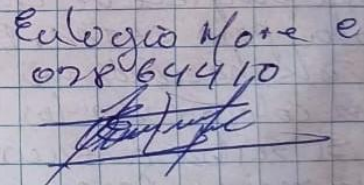 Eulogio More e
02864410